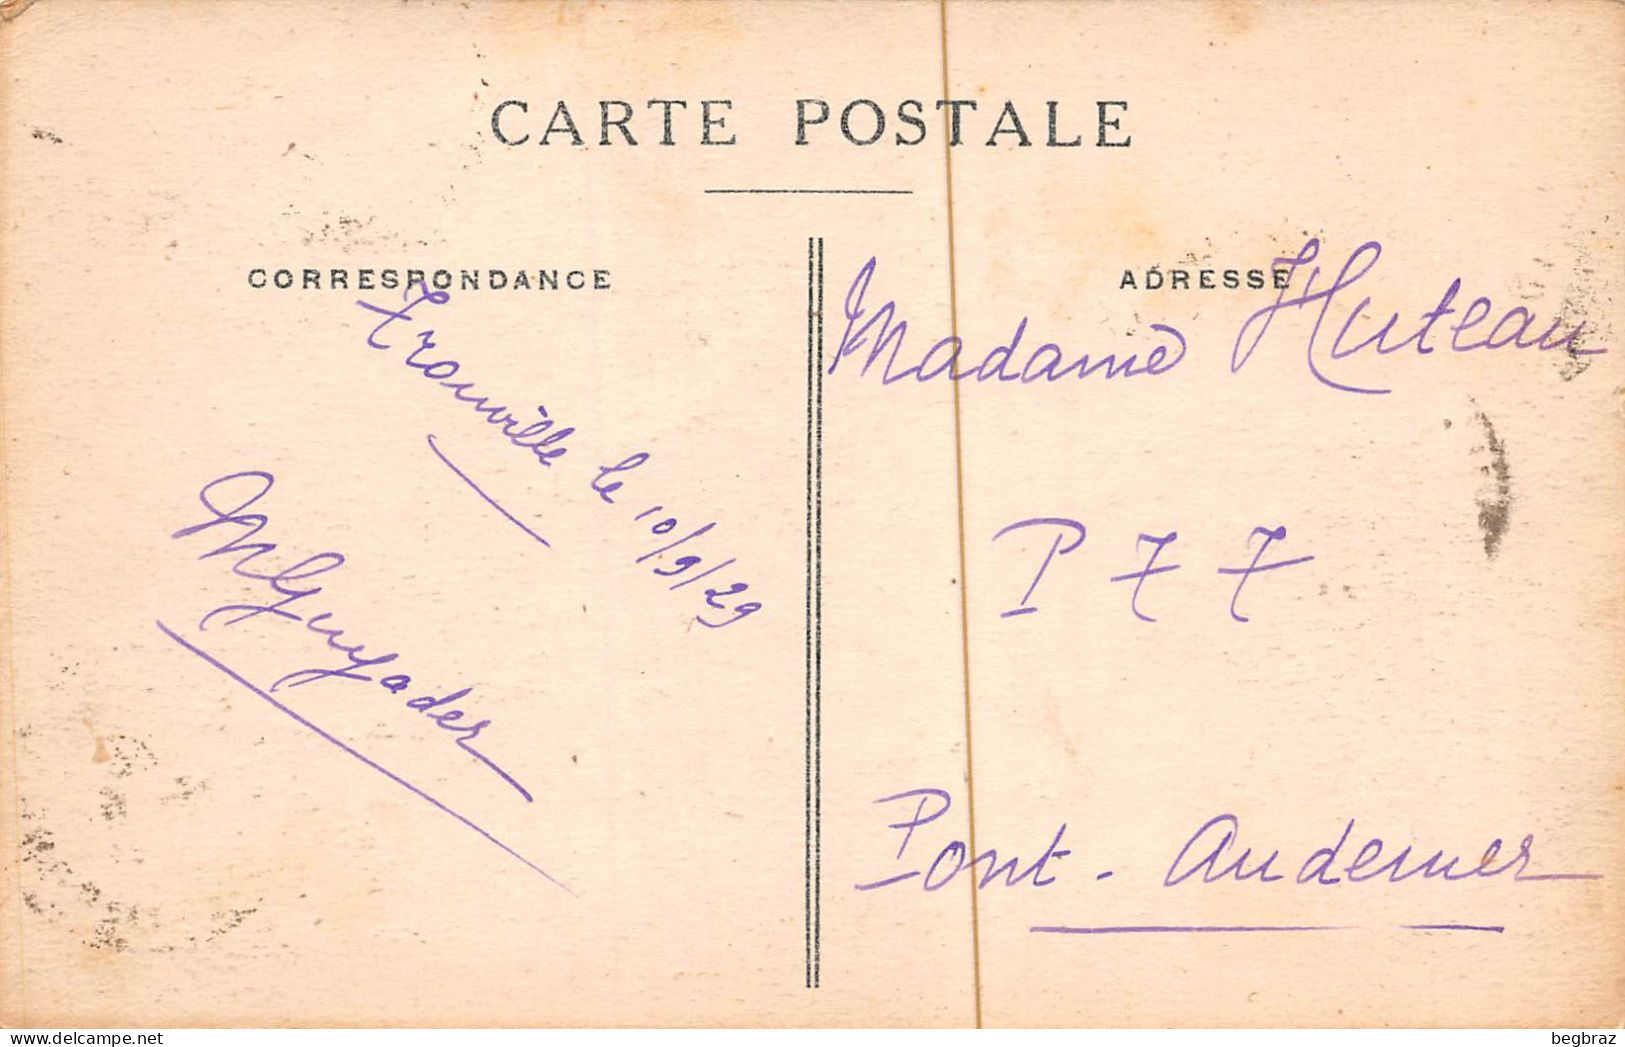 CARTE POSTALE
CORRESPONDANCE
Trouville le 10/9/29
MGuyader
ADRESSE
Madame Huteau
P 77
Pont-Audemer
begbraz